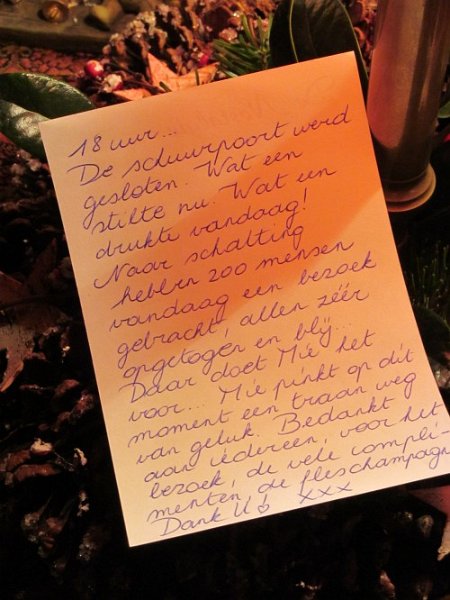 18 uur...
De schuurpoort werd
gesloten. Wat een
stilte nu. Wat een
drukte vandaag!
Naar schatting
hebben 200 mensen
vandaag een bezoek
gebracht, allen zéér
opgetogen en blij...
Daar doet Mie het
voor... Mie pinkt op dit
moment een traan weg
van geluk. Bedankt
aan iedereen, voor het
bezoek, de vele compli-
menten, de fleschampagn
Dank U xxx